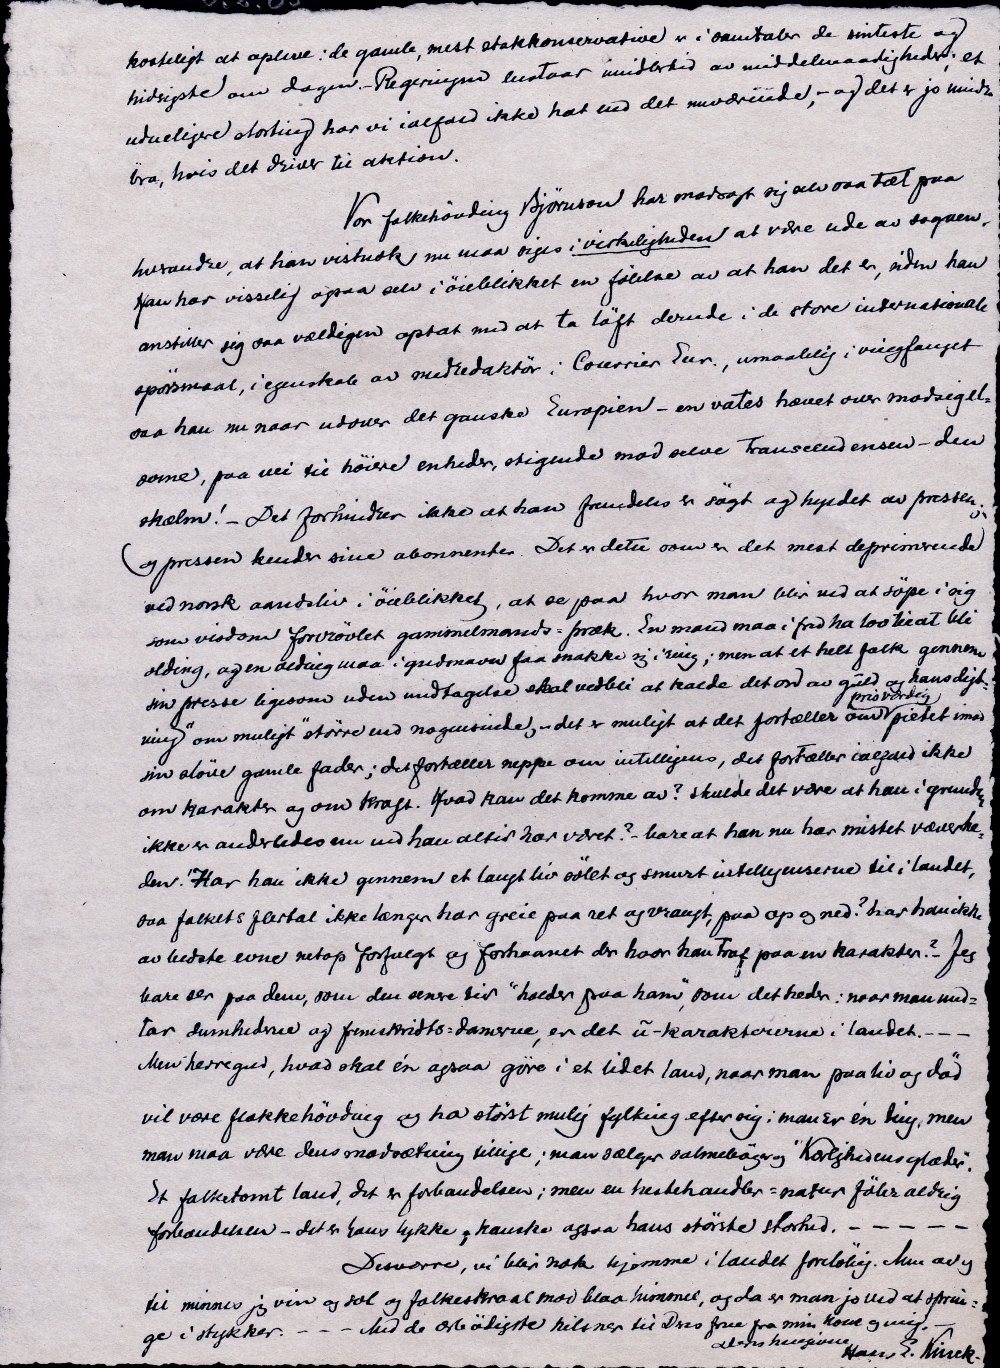 kosteligt at opleve: de gamle, mest stokkonservative er i samtaler de sinteste og
hidsigste om dagen. – Regjeringen bestaar imidlertid av middelmaadigheder; et
udueligere storting har vi ialfald ikke hat end det nuværende, – og det er jo mindre
bra, hvis det driver til aktion.
Vor folkehövding Björnson har modsagt sig selv saa tæt paa
hverandre, at han vistnok nu maa siges i virkeligheden at være ude av sagaen.
Han har visselig ogsaa selv i öieblikket en fölelse av at han det er, siden han
anstiller sig saa vældigen optat med at ta löft derude i de store internationale
spörsmaal, i egenskab av medredaktör i Courrier Eur., umaalelig i vingfanget
saa han nu naar udover det ganske Europien – en vates hævet over modsigel=
serne, paa vei til höiere enheder, stigende mod selve Transcendensen – den
skælm! – Det forhindrer ikke at han fremdeles er sögt og hyldet av pressen;
(og pressen kender sine abonnenter. Det er dette som er det mest deprimerende)
ved norsk aandsliv i öieblikket, at se paa hvor man blir ved at söpe i sig
som visdom forrövlet gammelmands=præk. En mand maa i fred ha lov til at bli
olding, og en olding maa i gudsnavn faa snakke sig i seng; men at et helt folk gennem
sin presse ligesom uden undtagelse skal vedbli at kalde det ord av guld og hans digt=
ning "om muligt" större end nogensinde, – det er muligt at det fortæller om prisværdig pietet imod
sin slöve gamle fader; det fortæller neppe om intelligens, det fortæller ialfald ikke
om karakter og om kraft. Hvad kan det komme av? Skulde det være at han i grunden
ikke er anderledes nu end han altid har været? – bare at han nu har mistet
den. Har han ikke gennem et langt liv sölet og smurt intelligenserne til i landet,
saa folkets flertal ikke længer har greie paa ret og vrangt, paa op og ned? har han ikke
av bedste evne netop forfulgt og forhaanet der hvor han traf paa en karakter? – Jeg
bare ser paa dem, som den senere tid "holder paa ham", som det heder: naar man und=
tar dumhederne og fremskridts=damerne, er det u-karaktererne i landet. – – –
Men herregud, hvad skal én ogsaa göre i et lidet land, naar man paa liv og död
vil være flokkehövding og ha störst mulig fylking efter sig: man er én ting, men
man maa være dens modsætning tillige; man sælger salmeböger og "Kærlighedens glæder".
Et folketomt land, det er forbandelsen; men en hestehandler=natur föler aldrig
forbandelsen – det er hans lykke, kanske ogsaa hans störste storhed. – – – – –
Desværre, vi blir nok hjemme i landet forelöbig. Men av og
til mindes jeg vin og sol og folkeskraal mod blaa himmel, og da er man jo ved at sprin=
ge i stykker. – – – Med de ærbödigste hilsner til Deres frue fra min kone og mig. –
deres hengivne
Hans E. Kinck.